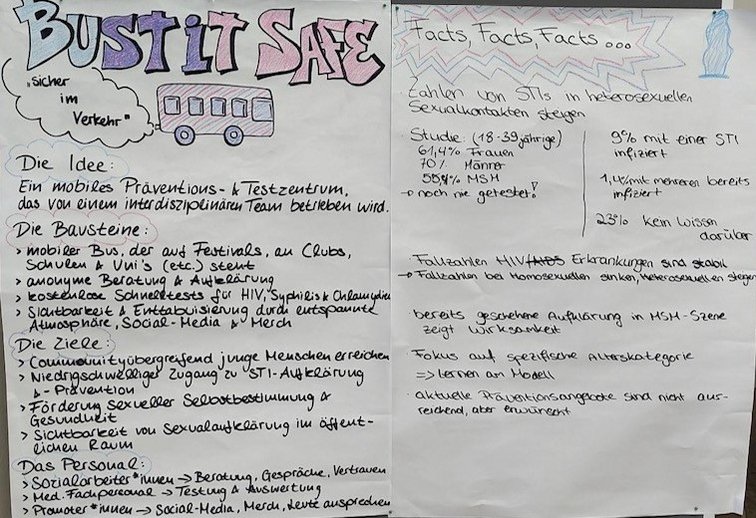 BUST IT SAFE
„sicher
im
Verkehr"
Die Idee:
Ein mobiles Präventions- & Testzentrum,
das von einem interdisziplinären Team betrieben wird.
Die Bausteine:
> mobiler Bus, der auf Festivals, an Clubs,
Schulen & Uni's (etc.) steht
> anonyme Beratung & Aufklärung
> kostenlose Schnelltests für HIV, Syphilis & Chlamydien
> Sichtbarkeit & Enttabuisierung durch entspannte
Atmosphäre, Social-Media & Merch
Die Ziele:
> Communityübergreifend junge Menschen erreichen
> Niedrigschwelliger Zugang zu STI-Aufklärung
& -Prävention
> Förderung sexueller Selbstbestimmung &
Gesundheit
> Sichtbarkeit von Sexualaufklärung im öffent-
lichen Raum
Das Personal:
> Sozialarbeiter*innen → Beratung, Gespräche, Vertrauen
> Med. Fachpersonal → Testung & Auswertung
> Promoter*innen → Social-Media, Merch, Leute ansprechen
Facts, Facts, Facts ...
Zahlen von STIs in heterosexuellen
Sexualkontakten steigen
Studie: (18-39jährige)
61,4% Frauen
70% Männer
→ noch nie getestet!
9% mit einer STI
infiziert
1,4% mit mehreren bereits
infiziert
23% kein Wissen
darüber
Fallzahlen HIV/AIDS Erkrankungen sind stabil
→ Fallzahlen bei Homosexuellen sinken, Heterosexuellen steigen
bereits geschehene Aufklärung in MSM-Szene
zeigt Wirksamkeit
Fokus auf spezifische Alterskategorie
=> Lernen am Modell
aktuelle Präventionsangebote sind nicht aus-
reichend, aber erwünscht